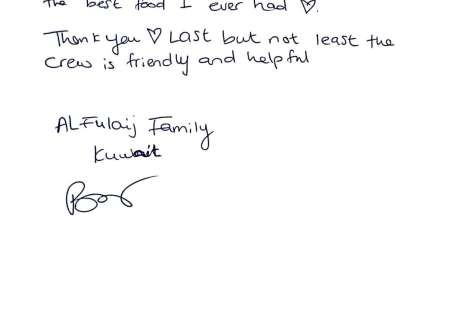 the best food I ever had ♡.
Thank you ♡ Last but not least the
crew is friendly and helpful
ALFulaij Family
Kuwait